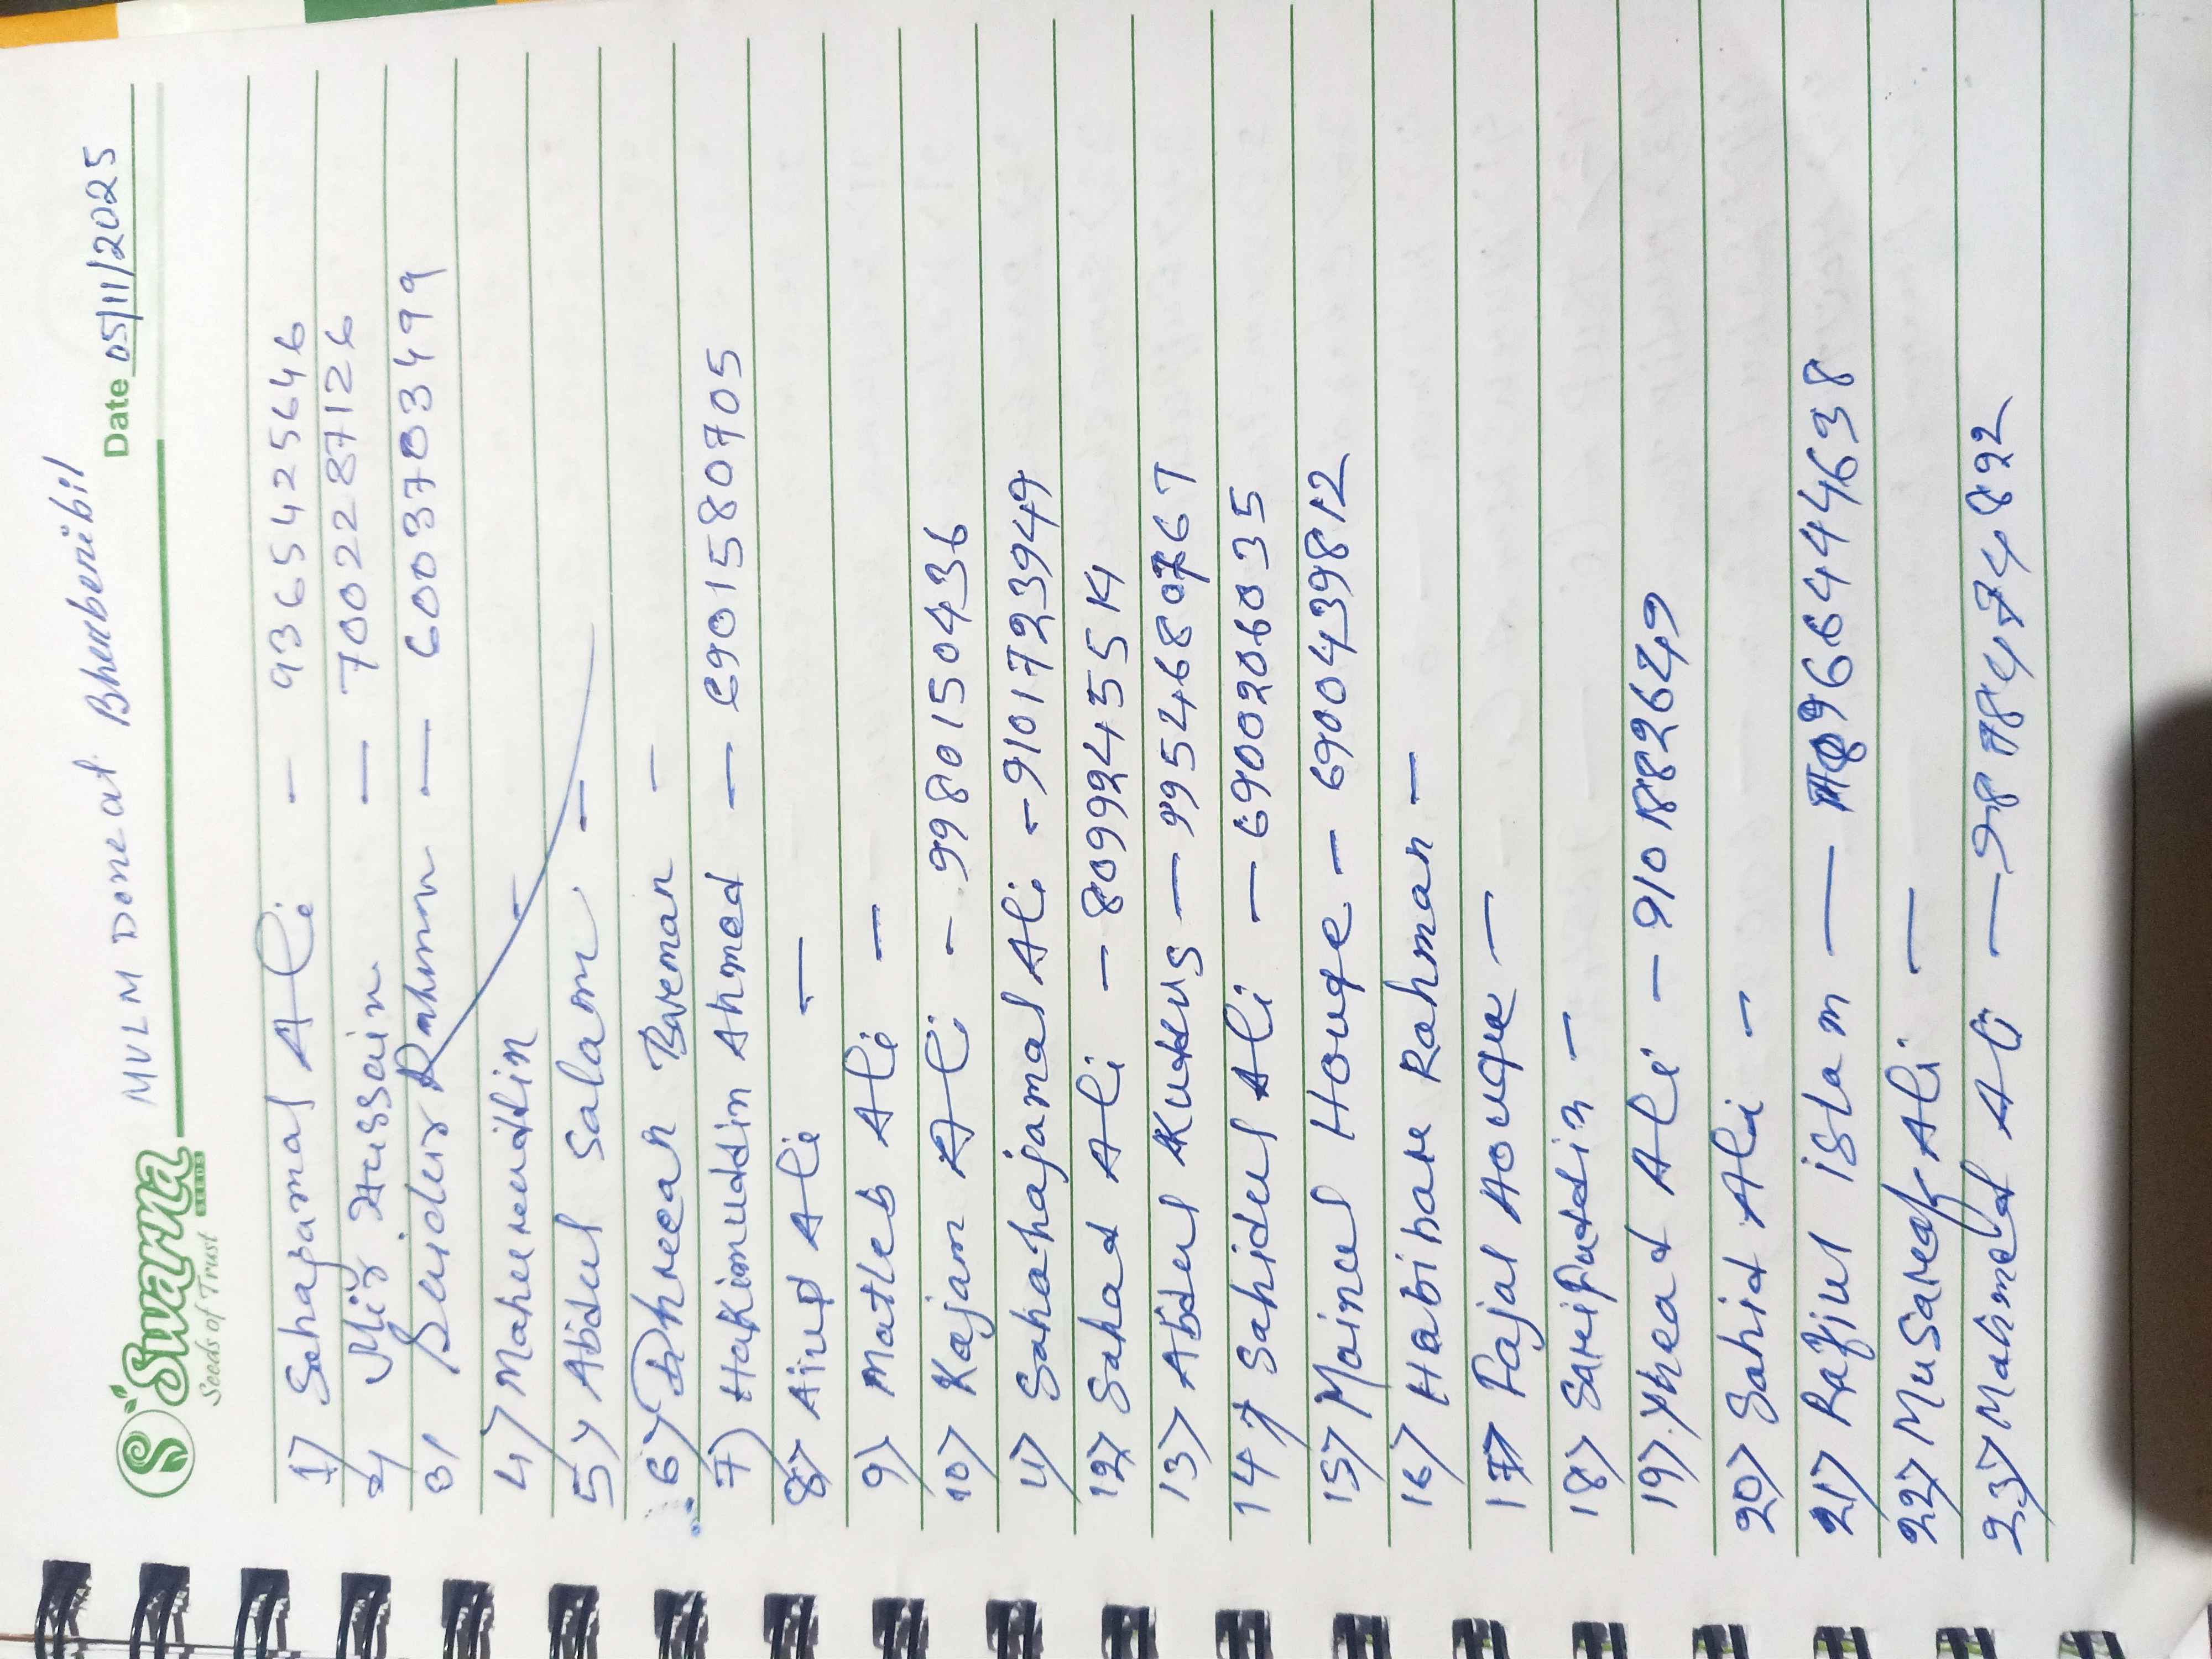 MVLM Doneat Bherberibil
Swarna
SEEDS
Seeds of Trust
Date 05/11/2025
1) Sahajamal Ali - 9365425646
2) Mir Hussain - 7002287126
3) Rahman - 6003703499
4) Maheruddin -
5) Abdul Salam -
6) Bareman -
7) Hakimuddin Ahmed - 6901580705
8) Aiup Ali -
9) Matleb Ali -
10) Kajam Ali - 9980150436
11) Sahajamal Ali - 9101723949
12) Sahad Ali - 8099243551
13) Abdul Kuddus - 9954680767
14) Sahidul Ali - 6900206035
15) Mainul Houqe - 6900439812
16) Habibar Rahman -
17) Fajal Houque -
18) Sarifuddin -
19) Ali - 9101882649
20) Sahid Ali -
21) Rafiul islam - 9664444638
22) Musaraf Ali -
23) Mahmad Ali -